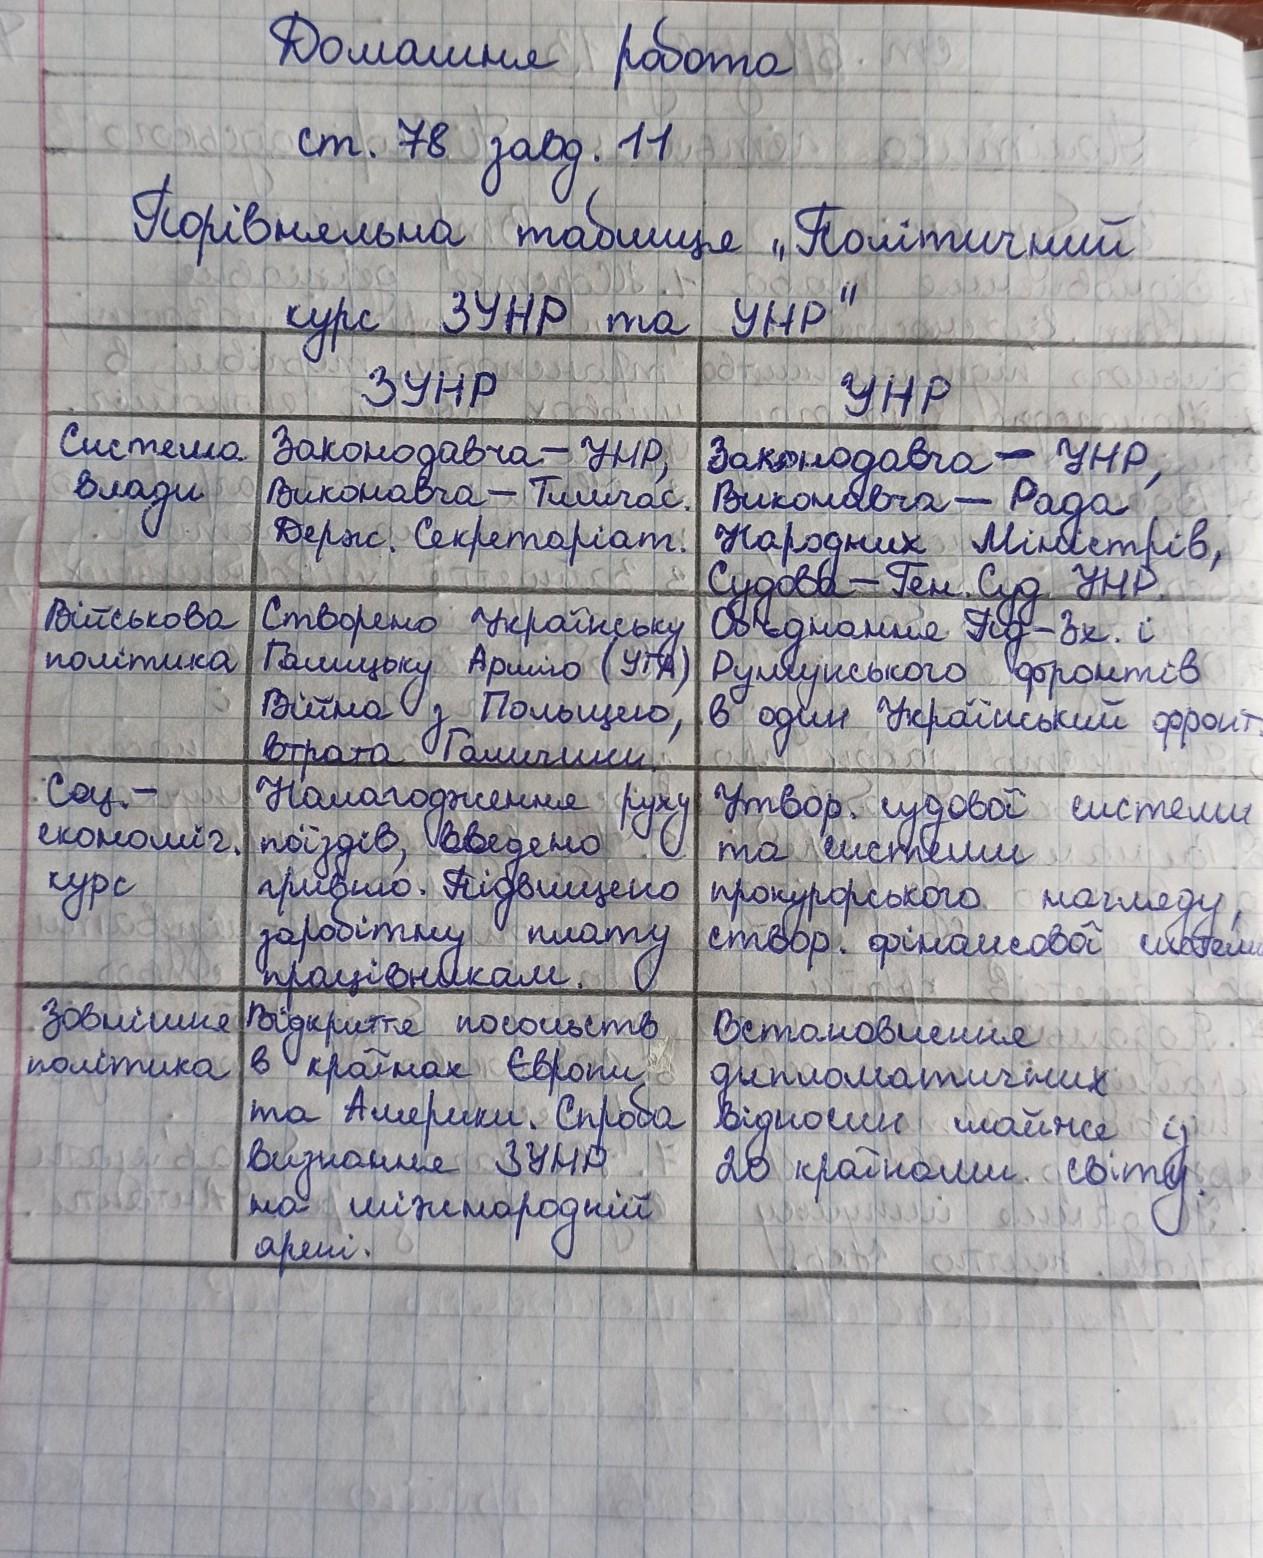 Домашня робота
ст. 78 завд. 11
Порівняльна таблиця „Політичний
курс ЗУНР та УНР"
ЗУНР
УНР
Система
влади
Законодавча – УНР,
Виконавча – Тимчас.
Держ. Секретаріат.
Законодавча – УНР,
Виконавча – Рада
Народних Міністрів,
Судова – Ген. Суд УНР.
Військова
політика
Створено Українську
Галицьку Армію (УГА)
Війна з Польщею,
втрата Галичини.
Об'єднання Пд-Зх. і
Румунського фронтів
в один Український фронт.
Соц.-
економіч.
курс
Налагодження руху
поїздів, введено
гривню. Підвищено
заробітну плату
працівникам.
Утвор. судової системи
та системи
прокурорського нагляду,
створ. фінансової системи
Зовнішня
політика
Відкриття посольств
в країнах Європи
та Америки. Спроба
визнання ЗУНР
на міжнародній
арені.
Встановлення
дипломатичних
відносин майже із
20 країнами світу.